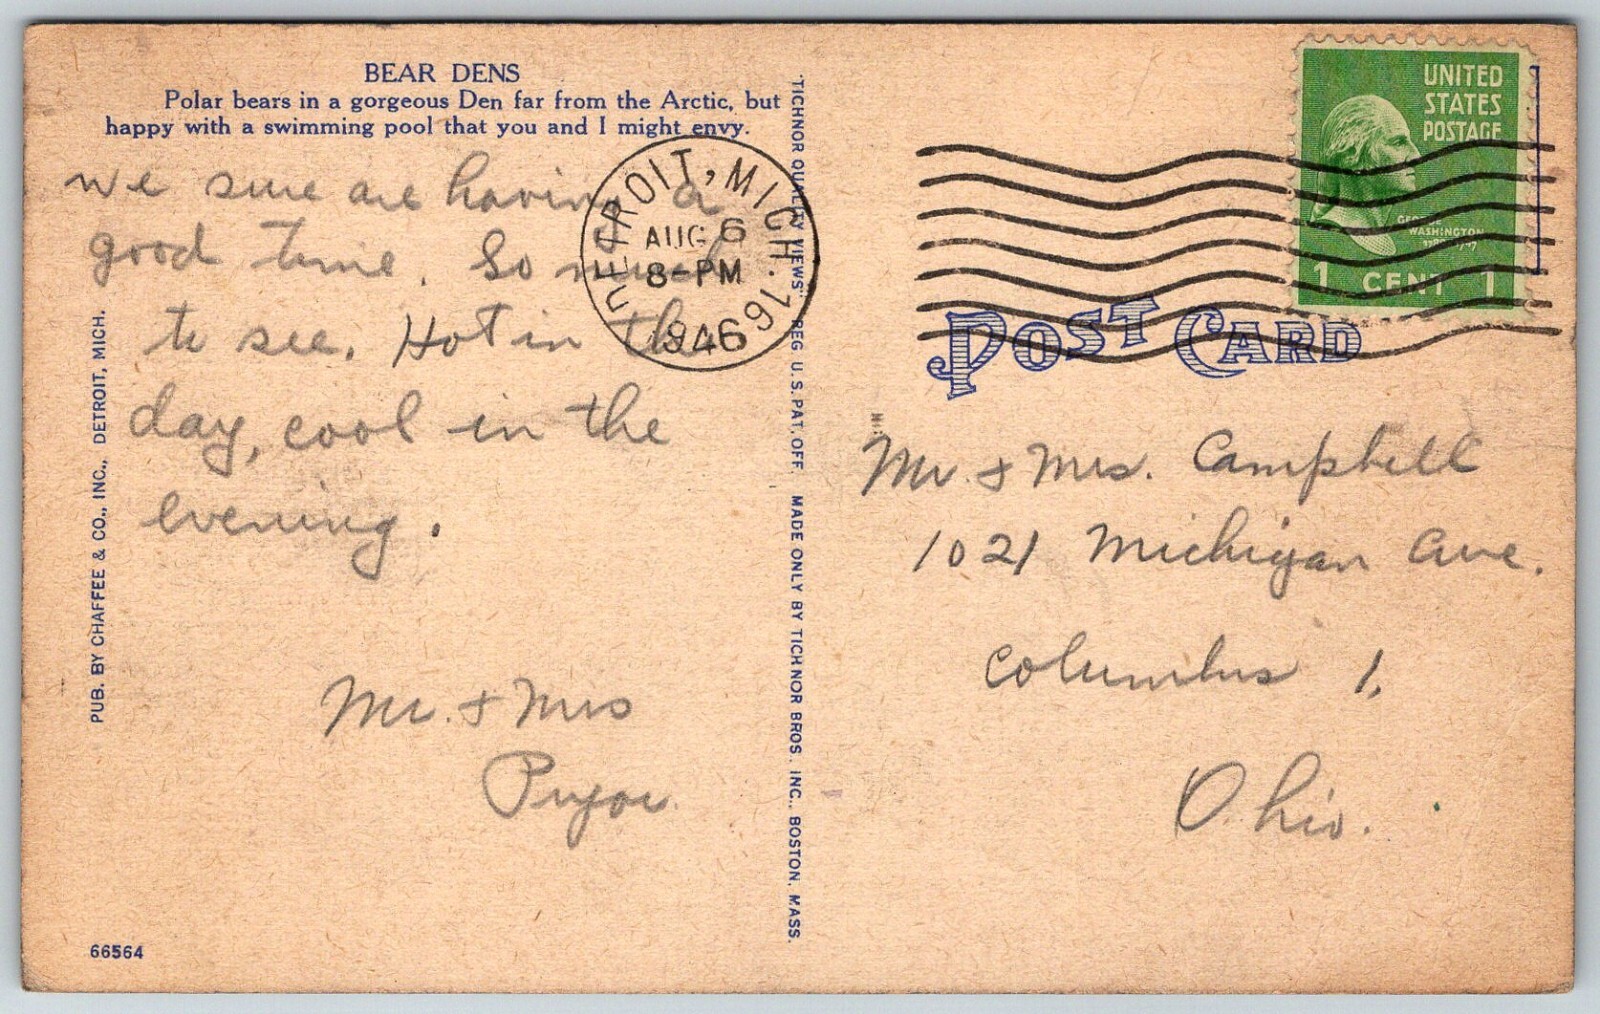 BEAR DENS
Polar bears in a gorgeous Den far from the Arctic, but
happy with a swimming pool that you and I might envy.
we sure are having a
good time. So much
to see. Hot in the
day, cool in the
evening.
Mr. & Mrs
Pryor.
PUB. BY CHAFFEE & CO., INC., DETROIT, MICH.
66564
"TICHNOR QUALITY VIEWS" REG U.S. PAT. OFF. MADE ONLY BY TICHNOR BROS. INC., BOSTON, MASS.
DETROIT, MICH. 16
AUG 6
8-PM
1946
UNITED
STATES
POSTAGE
GEORGE
WASHINGTON
1789-1797
1 CENT 1
POST CARD
Mr. & Mrs. Campbell
1021 Michigan Ave.
Columbus 1.
Ohio.